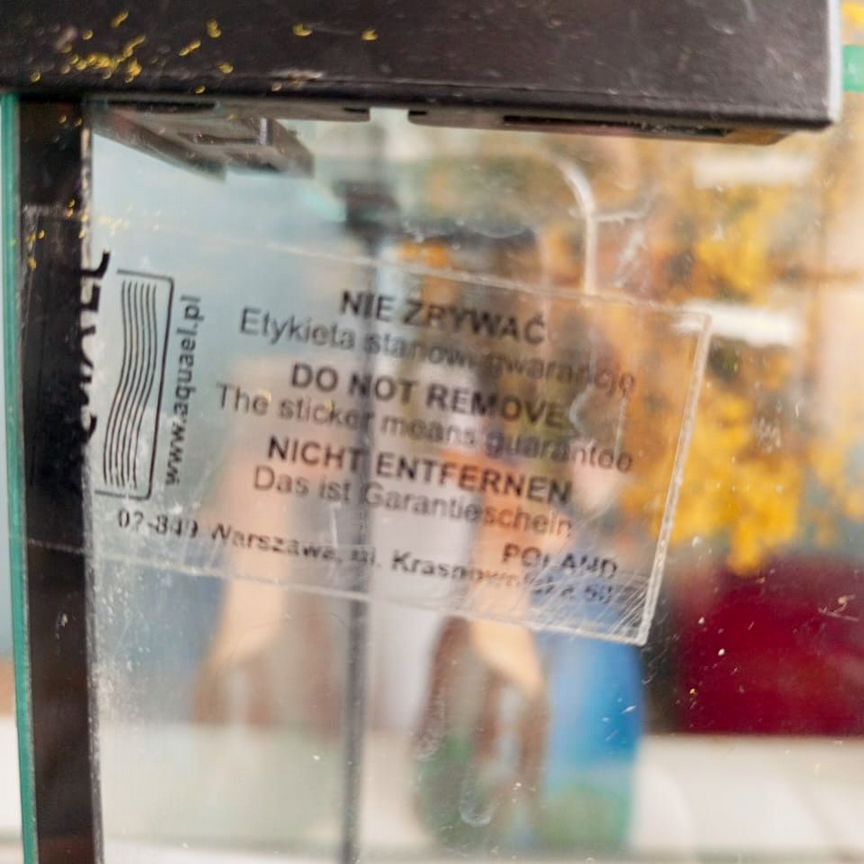 www.aquael.pl
NIE ZRYWAĆ
Etykieta stanowi gwarancję
DO NOT REMOVE
The sticker means guarantee
NICHT ENTFERNEN
Das ist Garantieschein
POLAND
02-849 Warszawa, ul.